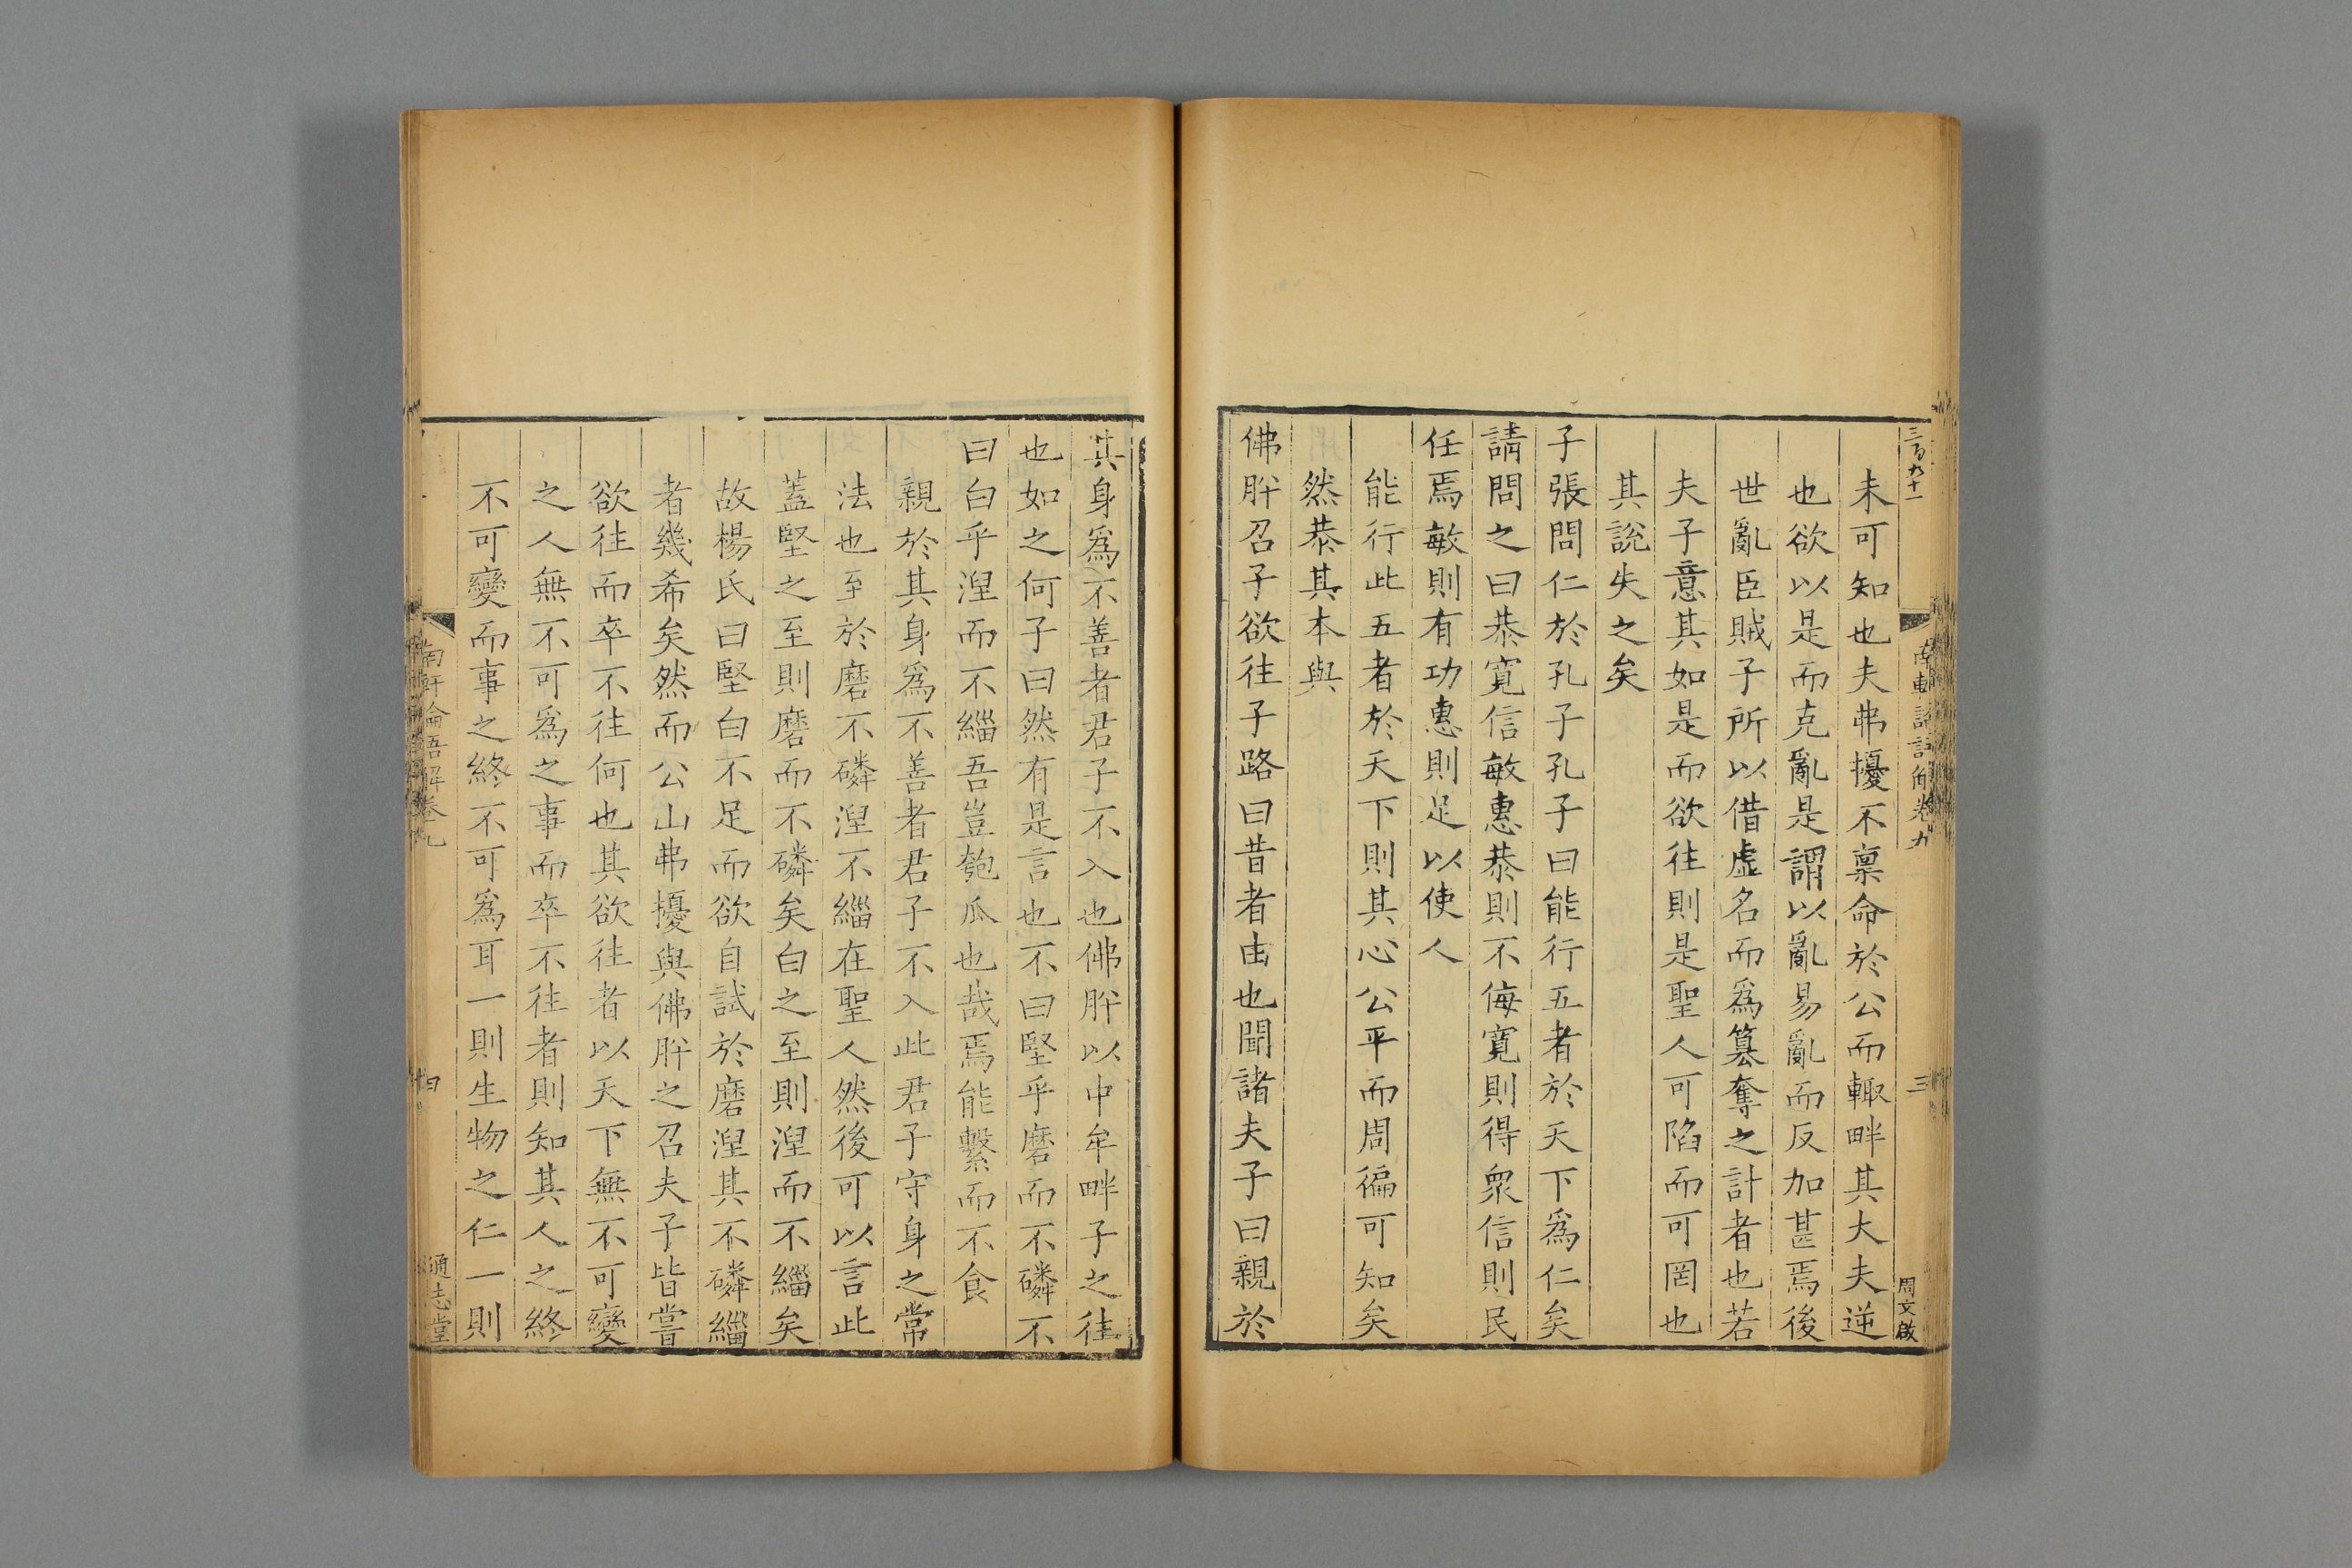 三百九十一
南軒論語解卷九
三
周文啟
未可知也夫弗擾不禀命於公而輙畔其大夫逆
也欲以是而克亂是謂以亂易亂而反加甚焉後
世亂臣賊子所以借虛名而為篡奪之計者也若
夫子意其如是而欲往則是聖人可陷而可罔也
其說失之矣
子張問仁於孔子孔子曰能行五者於天下為仁矣
請問之曰恭寛信敏惠恭則不侮寛則得衆信則民
任焉敏則有功惠則足以使人
能行此五者於天下則其心公平而周徧可知矣
然恭其本與
佛肸召子欲往子路曰昔者由也聞諸夫子曰親於
其身為不善者君子不入也佛肸以中牟畔子之往
也如之何子曰然有是言也不曰堅乎磨而不磷不
曰白乎湼而不緇吾豈匏瓜也哉焉能繫而不食
親於其身為不善者君子不入此君子守身之常
法也至於磨不磷湼不緇在聖人然後可以言此
蓋堅之至則磨而不磷矣白之至則湼而不緇矣
故楊氏曰堅白不足而欲自試於磨湼其不磷緇
者幾希矣然而公山弗擾與佛肸之召夫子皆嘗
欲往而卒不往何也其欲往者以天下無不可變
之人無不可為之事而卒不往者則知其人之終
不可變而事之終不可為耳一則生物之仁一則
南軒論語解卷九
四
通志堂